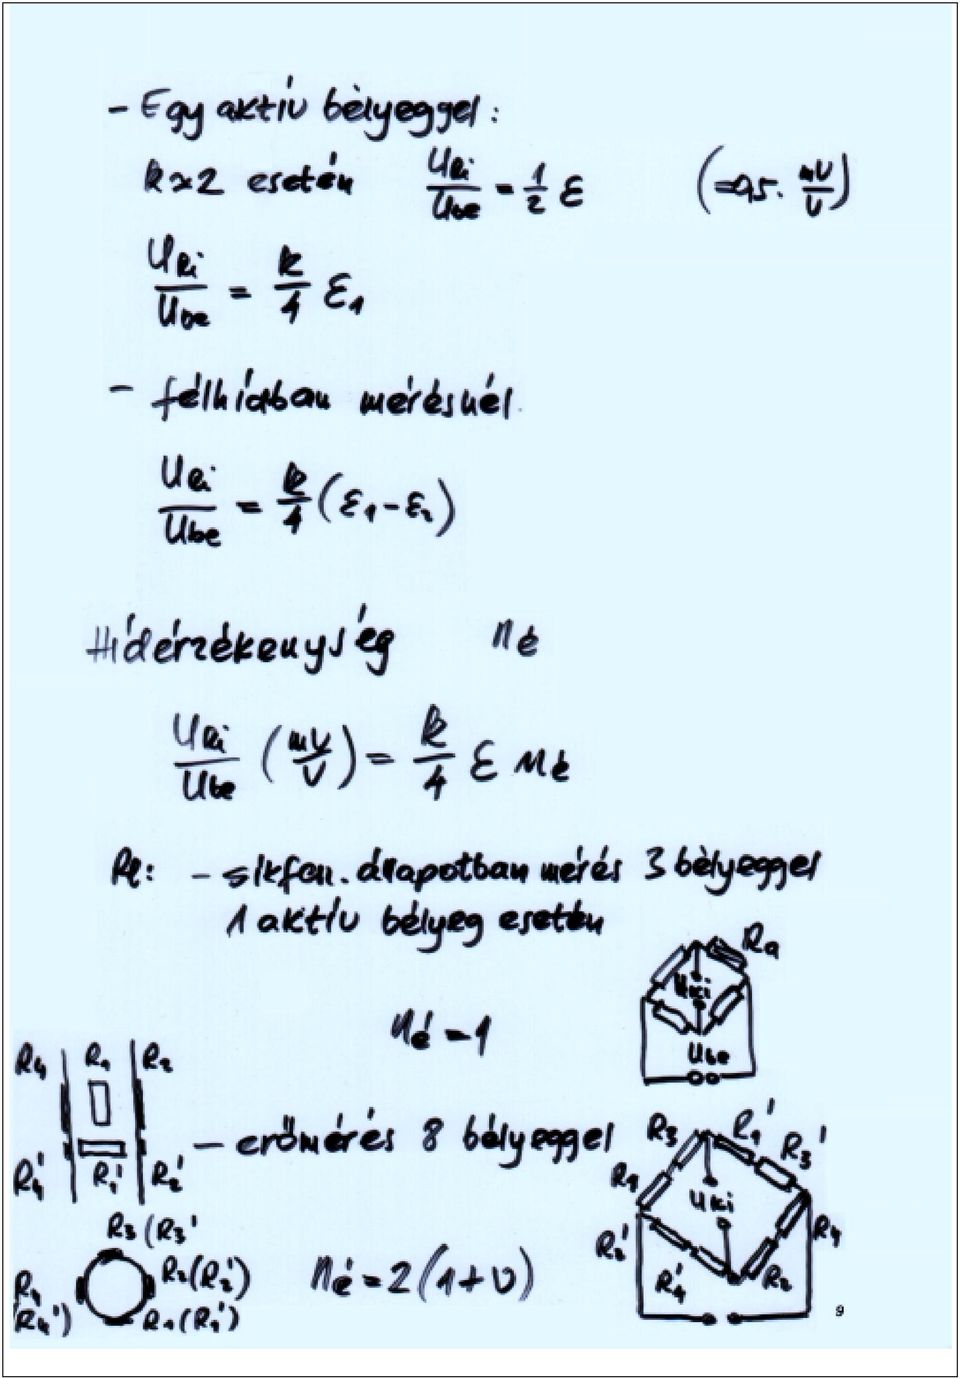 - Egy aktív bélyeggel:
k≈2 esetén Uki/Ube = 1/2 ε (= 0,5. mV/V)
Uki/Ube = k/4 ε1
- félhídban mérésnél
Uki/Ube = k/4 (ε1-ε2)
Hídérzékenység né
Uki/Ube (mV/V) = k/4 ε né
Pl: - síkfesz. állapotban mérés 3 bélyeggel
1 aktív bélyeg esetén
Ra
Uki
Ube
né = 1
R4 R1 R2
- erőmérés 8 bélyeggel
R4' R1' R2'
R3 (R3'
R4 (R4') R2 (R2')
R1 (R1')
né = 2(1+υ)
R3 R1' R3'
R1 Uki
R2' R4
R4' R2
9